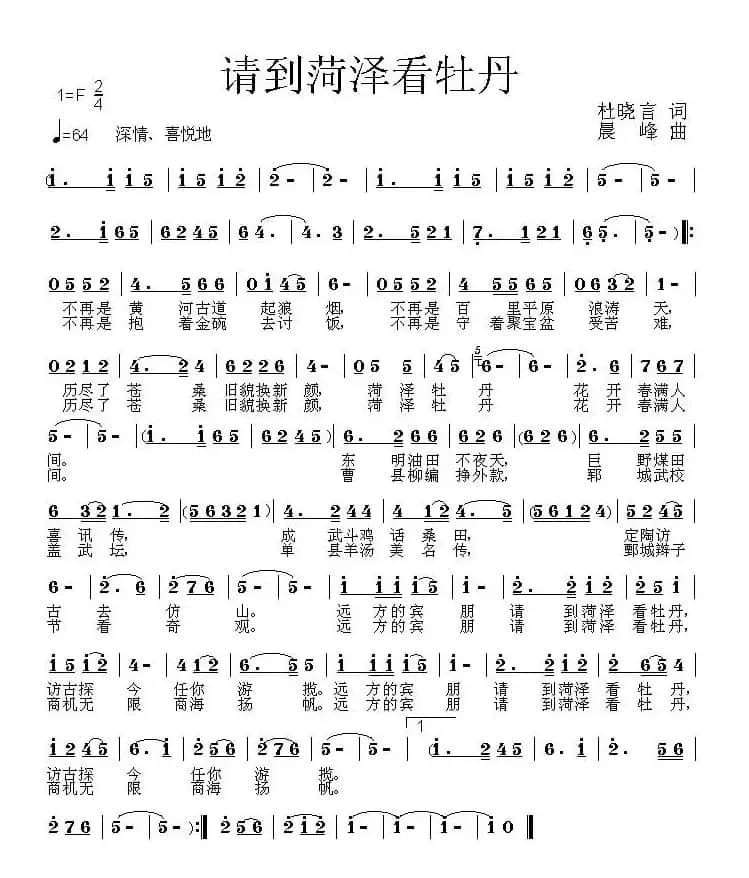 请到菏泽看牡丹
1=F 2/4
杜晓言 词
♩=64 深情、喜悦地
晨峰 曲
(i. i i5 | i5 i2 | 2- | 2- | i. i i5 | i5 i2 | 5- | 5- |
2. i 65 | 6245 | 64. | 4. 3 | 2. 5 21 | 7. 1 21 | 6 5. | 5-) ‖:
0552 | 4. 5 66 | 0i45 | 6- | 0552 | 4 55 65 | 0632 | 1- |
不再是 黄 河古道 起狼 烟, 不再是 百 里平原 浪涛 天,
不再是 抱 着金碗 去讨 饭, 不再是 守 着聚宝盆 受苦 难,
0212 | 4. 2 4 | 6226 | 4- | 05 5 | 45 | 5 6- | 6- | 2. 6 | 767 |
历尽了 苍 桑 旧貌换新 颜, 菏 泽 牡 丹 花 开 春满人
历尽了 苍 桑 旧貌换新 颜, 菏 泽 牡 丹 花 开 春满人
5- | 5- | (i. i 65 | 6245) | 6. 2 66 | 2676 | (626) | 6. 2 55 |
间。 东 明油田 不夜天, 巨 野煤田
间。 曹 县柳编 挣外款, 郓 城武校
6 321. 2 | (56321) | 4. 2 44 | 4 12 4. 5 | (561 24) | 5245 |
喜 讯 传, 成 武斗鸡 话 桑 田, 定陶访
盖 武 坛, 单 县羊汤 美 名 传, 鄄城辫子
6- | 2. 6 | 276 | 5- | 5- | i i2 i5 | i- | 2. 2 i2 | 245 |
古 去 仿 山。 远 方的宾 朋 请 到菏泽 看牡丹,
节 看 奇 观。 远 方的宾 朋 请 到菏泽 看牡丹,
i5 i2 | 4- | 4 12 | 6. 5 5 | i i2 i5 | i- | 2. 2 i2 | 2 65 4 |
访古探 今 任你 游 揽。远 方的宾 朋 请 到菏泽 看 牡 丹,
商机无 限 商海 扬 帆。远 方的宾 朋 请 到菏泽 看 牡 丹,
1
i245 | 6. i | 256 | 276 | 5- | 5- | (i. 2 245 | 6. i | 2. 56 |
访古探 今 任你 游 揽。
商机无 限 商海 扬 帆。
276 | 5- | 5-) :‖ 256 | 2i2 | i- | i- | i- | i0 ‖